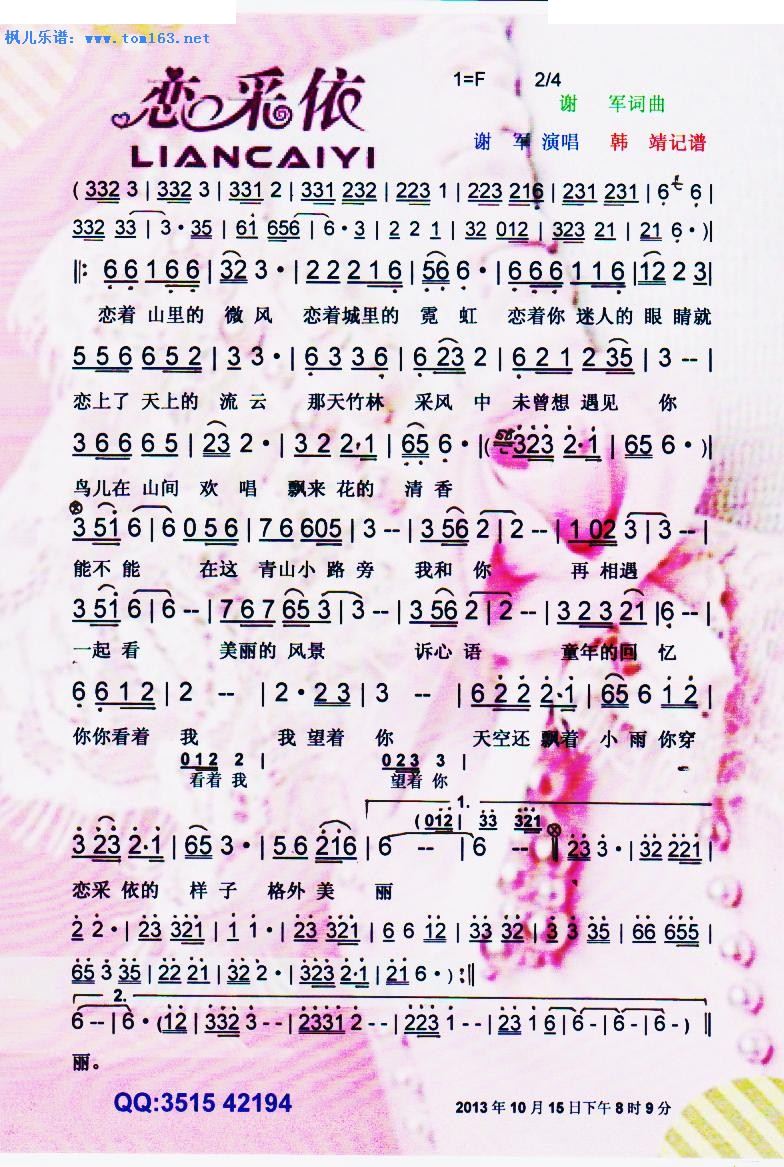 枫儿乐谱：www.tom163.net
恋采依
LIANCAIYI
1=F 2/4
谢 军词曲
谢 军 演唱 韩 靖记谱
( 332 3 | 332 3 | 331 2 | 331 232 | 223 1 | 223 216 | 231 231 | 6 6 |
332 33 | 3 · 35 | 61 656 | 6 · 3 | 2 2 1 | 32 012 | 323 21 | 21 6 · )|
‖: 6 6 1 6 6 | 32 3 · | 2 2 2 1 6 | 56 6 · | 6 6 6 1 1 6 | 12 2 3 |
恋着 山里的 微风 恋着城里的 霓 虹 恋着你 迷人的 眼 睛就
5 5 6 6 5 2 | 3 3 · | 6 3 3 6 | 6 23 2 | 6 2 1 2 35 | 3 -- |
恋上了 天上的 流 云 那天竹林 采风 中 未曾想 遇见 你
3 6 6 6 5 | 23 2 · | 3 2 2·1 | 65 6 · |( 323 2·1 | 65 6 · )|
鸟儿在 山间 欢 唱 飘来 花的 清 香
3 51 6 | 6 0 5 6 | 7 6 605 | 3 -- | 3 56 2 | 2 -- | 1 02 3 | 3 -- |
能不 能 在这 青山小 路 旁 我和 你 再 相遇
3 51 6 | 6 -- | 7 6 7 65 3 | 3 -- | 3 56 2 | 2 -- | 3 2 3 21 | 6 -- |
一起 看 美丽的 风景 诉心 语 童年的回 忆
6 6 1 2 | 2 -- | 2 · 2 3 | 3 -- | 6 2 2 2·1 | 65 6 1 2 |
你你看着 我 我 望着 你 天空还 飘着 小 雨 你穿
0 1 2 2 | 0 2 3 3 |
看着 我 望着 你
1.
( 012 | 33 321
3 23 2·1 | 65 3 · | 5 6 216 | 6 -- | 6 -- ‖ 23 3 · | 32 221 |
恋采 依的 样 子 格外 美 丽
2 2 · | 23 321 | 1 1 · | 23 321 | 6 6 12 | 33 32 | 3 3 35 | 66 655 |
65 3 35 | 22 21 | 32 2 · | 323 2·1 | 21 6 · ) :‖
2.
6 -- | 6 · (12 | 332 3 -- | 2331 2 -- | 223 1 -- | 23 1 6 | 6 - | 6 - | 6 - ) ‖
丽。
QQ:3515 42194
2013年10月15日下午8时9分